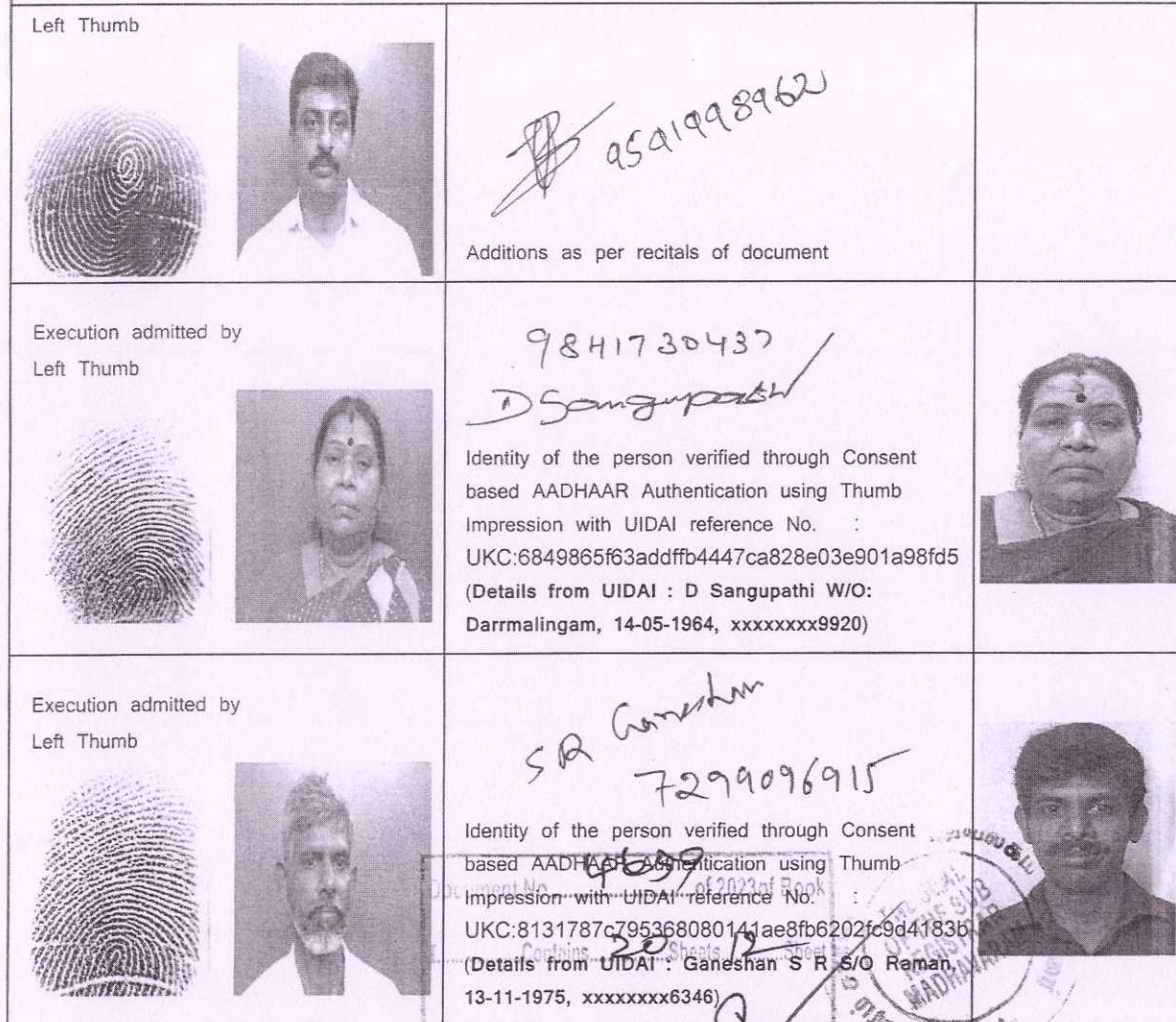 Left Thumb
9591998962
Additions as per recitals of document
Execution admitted by
Left Thumb
9841730437
D Sangupathi
Identity of the person verified through Consent
based AADHAAR Authentication using Thumb
Impression with UIDAI reference No. :
UKC:6849865f63addffb4447ca828e03e901a98fd5
(Details from UIDAI : D Sangupathi W/O:
Darrmalingam, 14-05-1964, xxxxxxxx9920)
Execution admitted by
Left Thumb
S R Ganeshan
7299096915
Identity of the person verified through Consent
based AADHAAR Authentication using Thumb
Impression with UIDAI reference No. :
UKC:8131787c795368080141ae8fb6202fc9d4183b
(Details from UIDAI : Ganeshan S R S/O Raman,
13-11-1975, xxxxxxxx6346)
Document No. 4639 of 2023 of Book
Contains 20 Sheets 12 Sheet
THE SEAL
OF THE SUB
REGISTRAR
MADHAVARAM